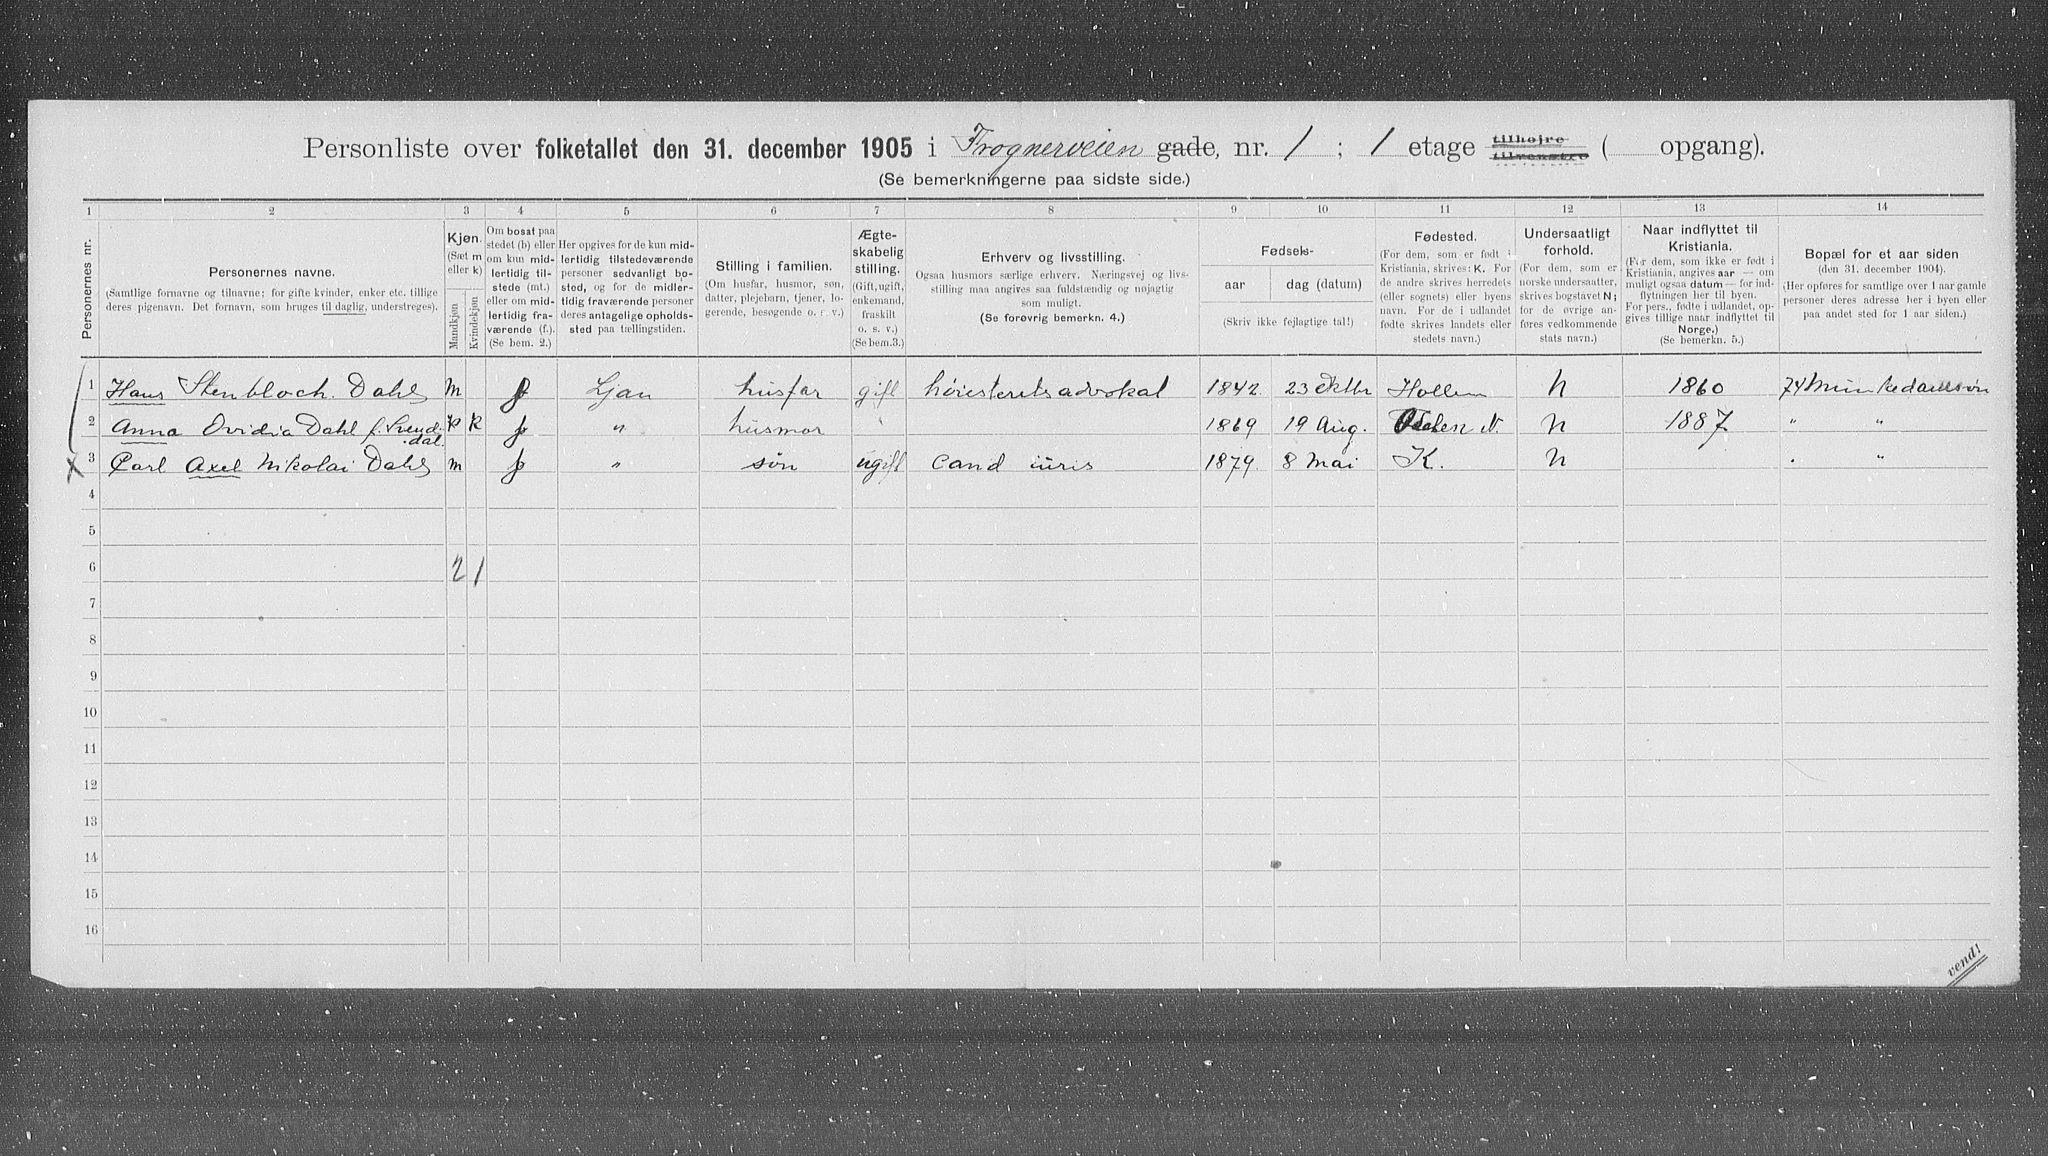 Personliste over folketallet den 31. december 1905 i Frognerveien gade, nr. 1 ; 1 etage tilhøjre tilvenstre ( opgang).
(Se bemerkningerne paa sidste side.)
1 2 3 4 5 6 7 8 9 10 11 12 13 14
Personernes nr.
Personernes navne.
(Samtlige fornavne og tilnavne; for gifte kvinder, enker etc. tillige
deres pigenavn. Det fornavn, som bruges til daglig, understreges).
Kjøn.
(Sæt m
eller k)
Mandkjøn
Kvindekjøn
Om bosat paa
stedet (b) eller
om kun mid-
lertidig til-
stede (mt.)
eller om mid-
lertidig fra-
værende (f.).
(Se bem. 2.)
Her opgives for de kun mid-
lertidig tilstedeværende
personer sedvanligt bo-
sted, og for de midler-
tidig fraværende personer
deres antagelige opholds-
sted paa tællingstiden.
Stilling i familien.
(Om husfar, husmor, søn,
datter, plejebarn, tjener, lo-
gerende, besøgende o. s. v.)
Ægte-
skabelig
stilling.
(Gift, ugift,
enkemand,
fraskilt
o. s. v.)
(Se bem.3.)
Erhverv og livsstilling.
Ogsaa husmors særlige erhverv. Næringsvej og livs-
stilling maa angives saa fuldstændig og nøjagtig
som muligt.
(Se forøvrig bemerkn. 4.)
Fødsels-
aar
dag (datum)
(Skriv ikke fejlagtige tal!)
Fødested.
(For dem, som er født i
Kristiania, skrives: K. For
de andre skrives herredets
(eller sognets) eller byens
navn. For de i udlandet
fødte skrives landets eller
stedets navn.)
Undersaatligt
forhold.
(For dem, som er
norske undersaatter,
skrives bogstavet N;
for de øvrige an-
føres vedkommende
stats navn.)
Naar indflyttet til
Kristiania.
(For dem, som ikke er født i
Kristiania, angives aar — om
muligt ogsaa datum — for ind-
flytningen her til byen.
For pers., fødte i udlandet, op-
gives tillige naar indflyttet til
Norge.)
(Se bemerkn. 5.)
Bopæl for et aar siden
(den 31. december 1904).
(Her opføres for samtlige over 1 aar gamle
personer deres adresse her i byen eller
paa andet sted for 1 aar siden.)
1 Hans Stenbloch. Dahl m f Ljan husfar gift høiesteretsadvokat 1842 23 Oktbr Hollen N 1860 74 Munkedamsvn
2 Anna Ovidia Dahl f. Svend- k k f " husmor " 1869 19 Aug. N. N 1887 " "
dal.
x 3 Carl Axel Nikolai Dahl m f " søn ugift cand iuris 1879 8 Mai K. N " "
4
5
6 2 1
7
8
9
10
11
12
13
14
15
16
vend!